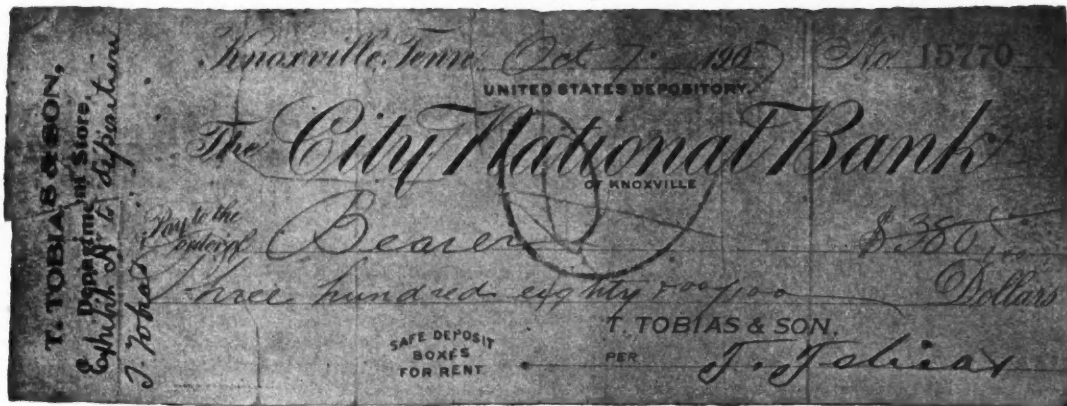 T. TOBIAS & SON,
Department Store,
Exhibit No 2 deposition
T. Tobias
Knoxville, Tenn. Oct 7 190 No. 15770
UNITED STATES DEPOSITORY.
The City National Bank
OF KNOXVILLE
Pay to the
order of Bearer $380 00/100
Three hundred eighty & 00/100 Dollars
SAFE DEPOSIT
BOXES
FOR RENT
T. TOBIAS & SON.
PER T. Tobias